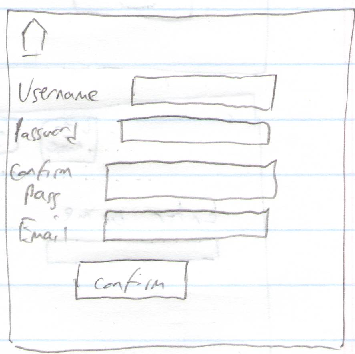 Username
Password
Confirm
Pass
Email
Confirm